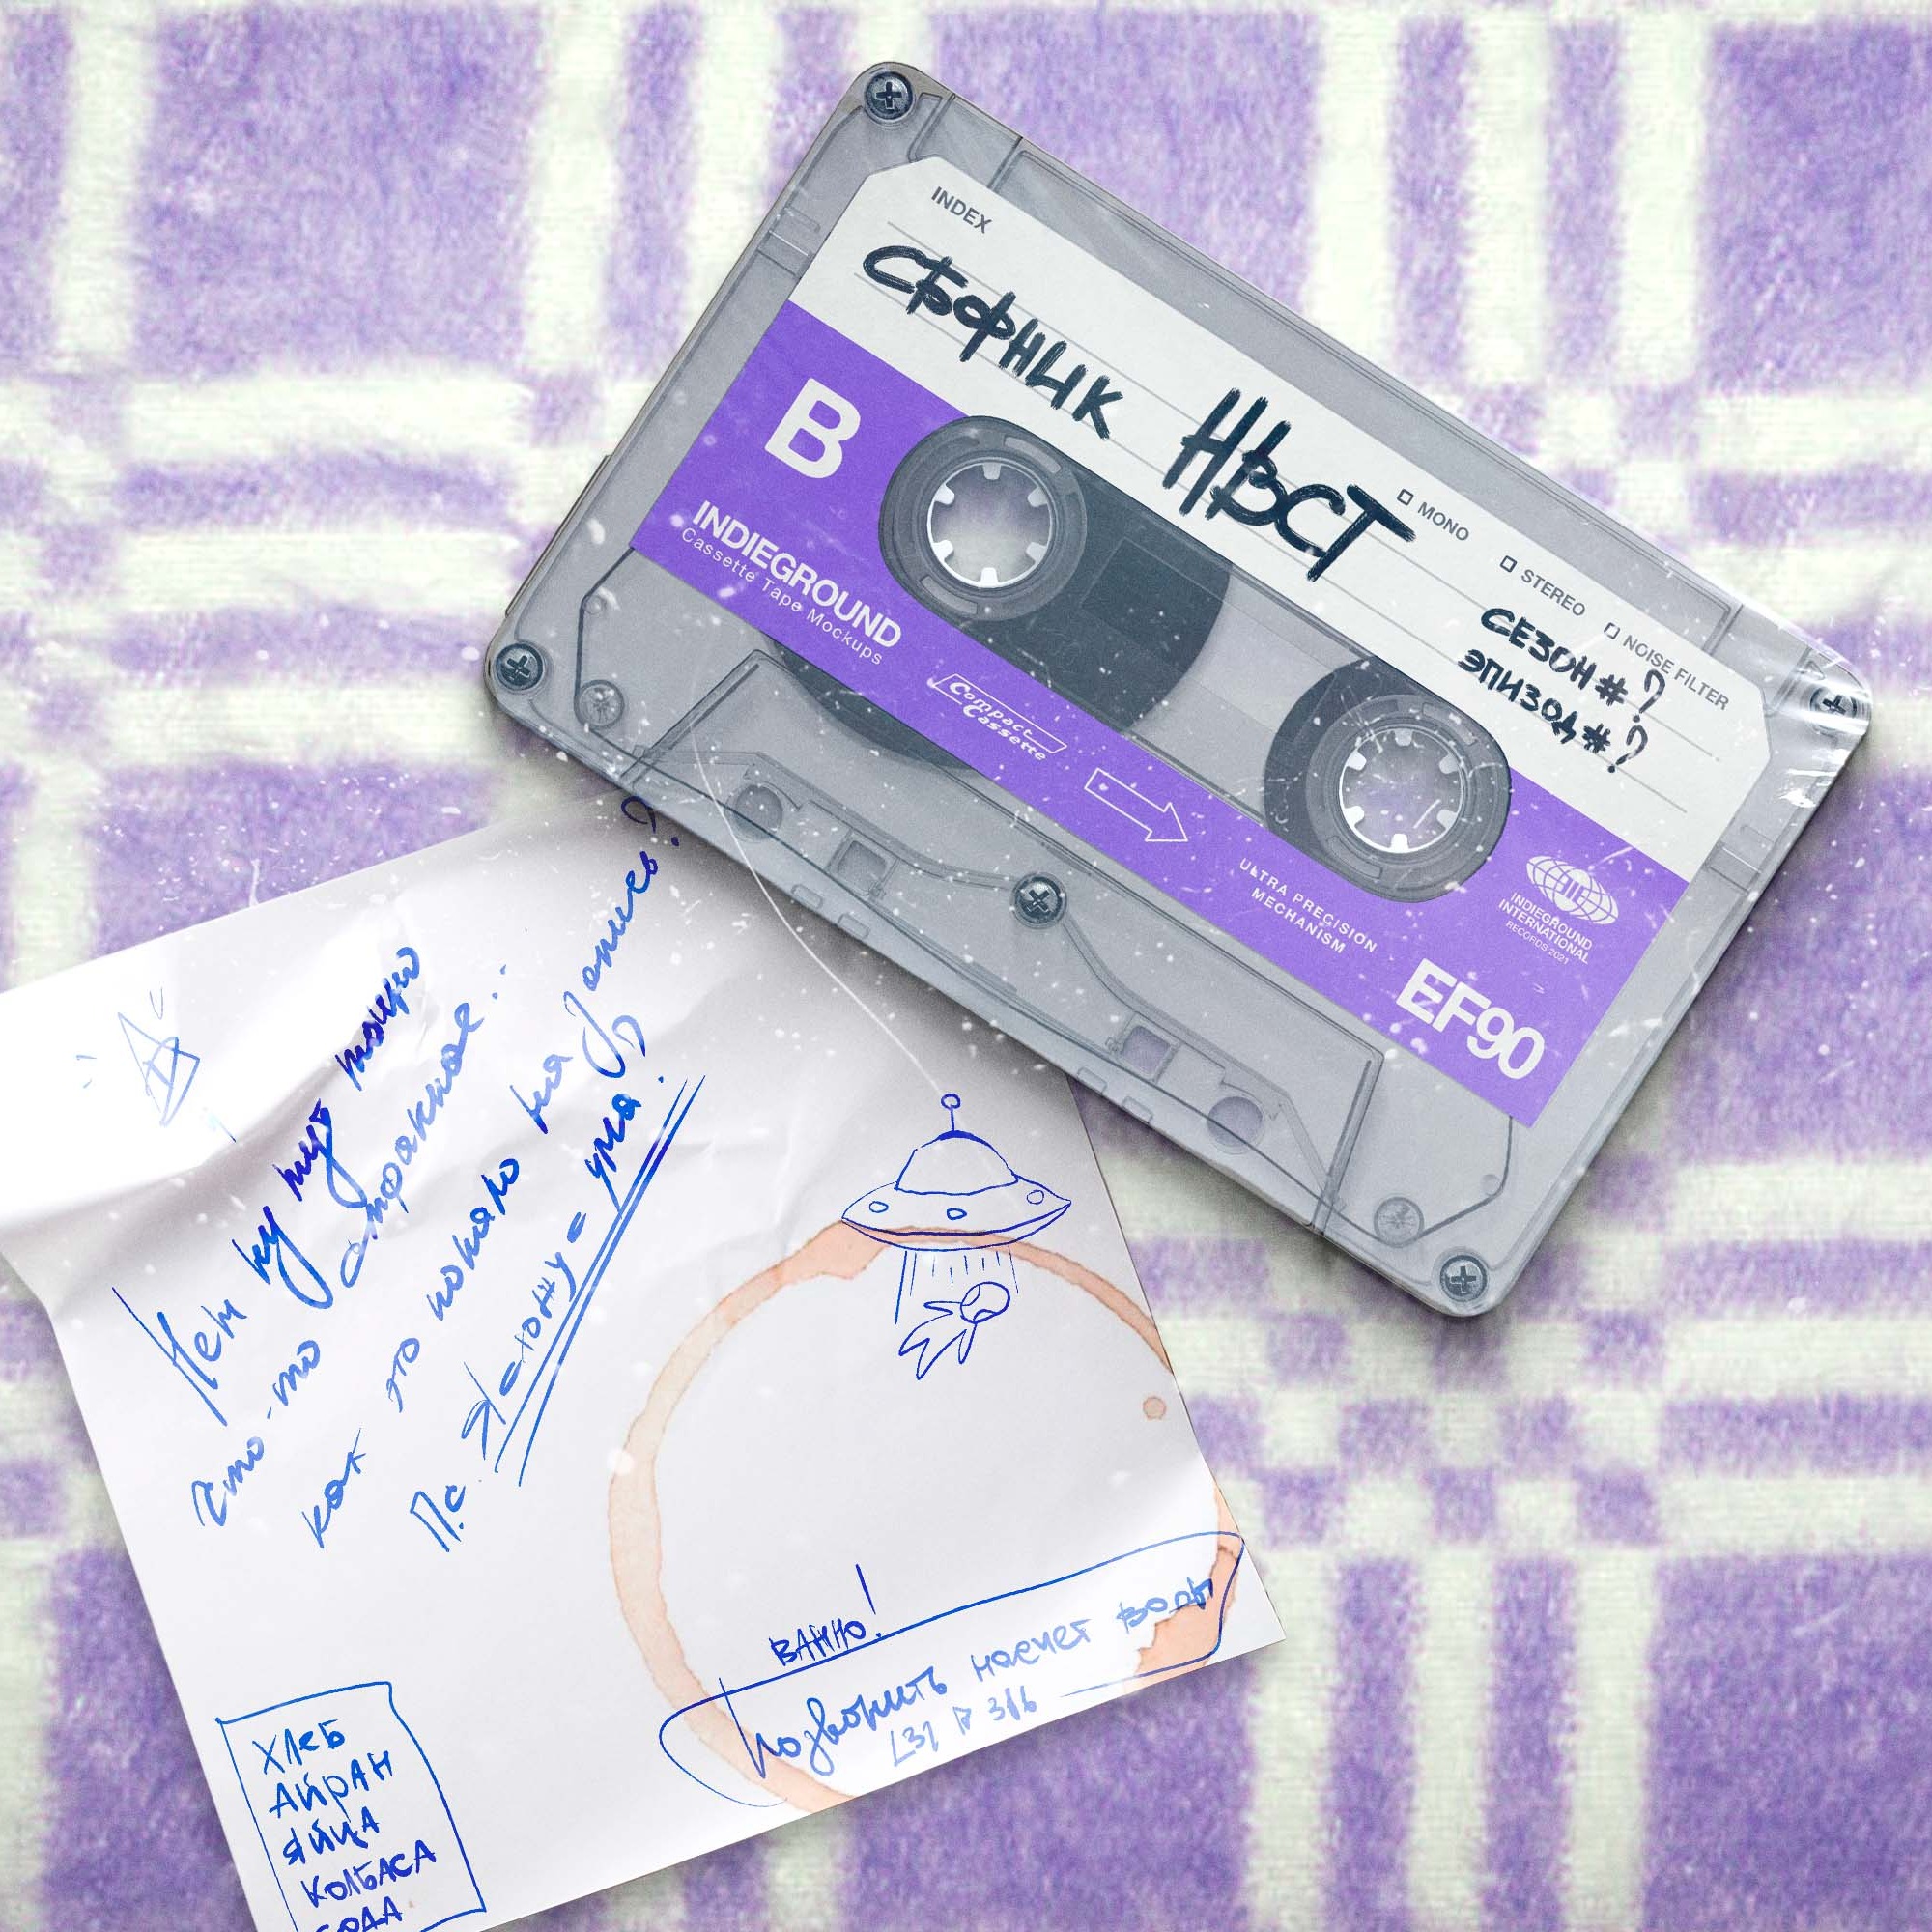 INDEX
СБОРНИК НВСТ
MONO
STEREO
NOISE FILTER
СЕЗОН #?
ЭПИЗОД #?
B
INDIEGROUND
Cassette Tape Mockups
Compact
Cassette
ULTRA PRECISION
MECHANISM
INDIEGROUND
INTERNATIONAL
RECORDS 2021
EF90
Нет ну тут точно
что-то странное..
как это попало на запись?
П.с. Я схожу с ума!
ВАЖНО!
Позвонить насчет воды
ХЛЕБ
АЙРАН
ЯЙЦА
КОЛБАСА
СОДА